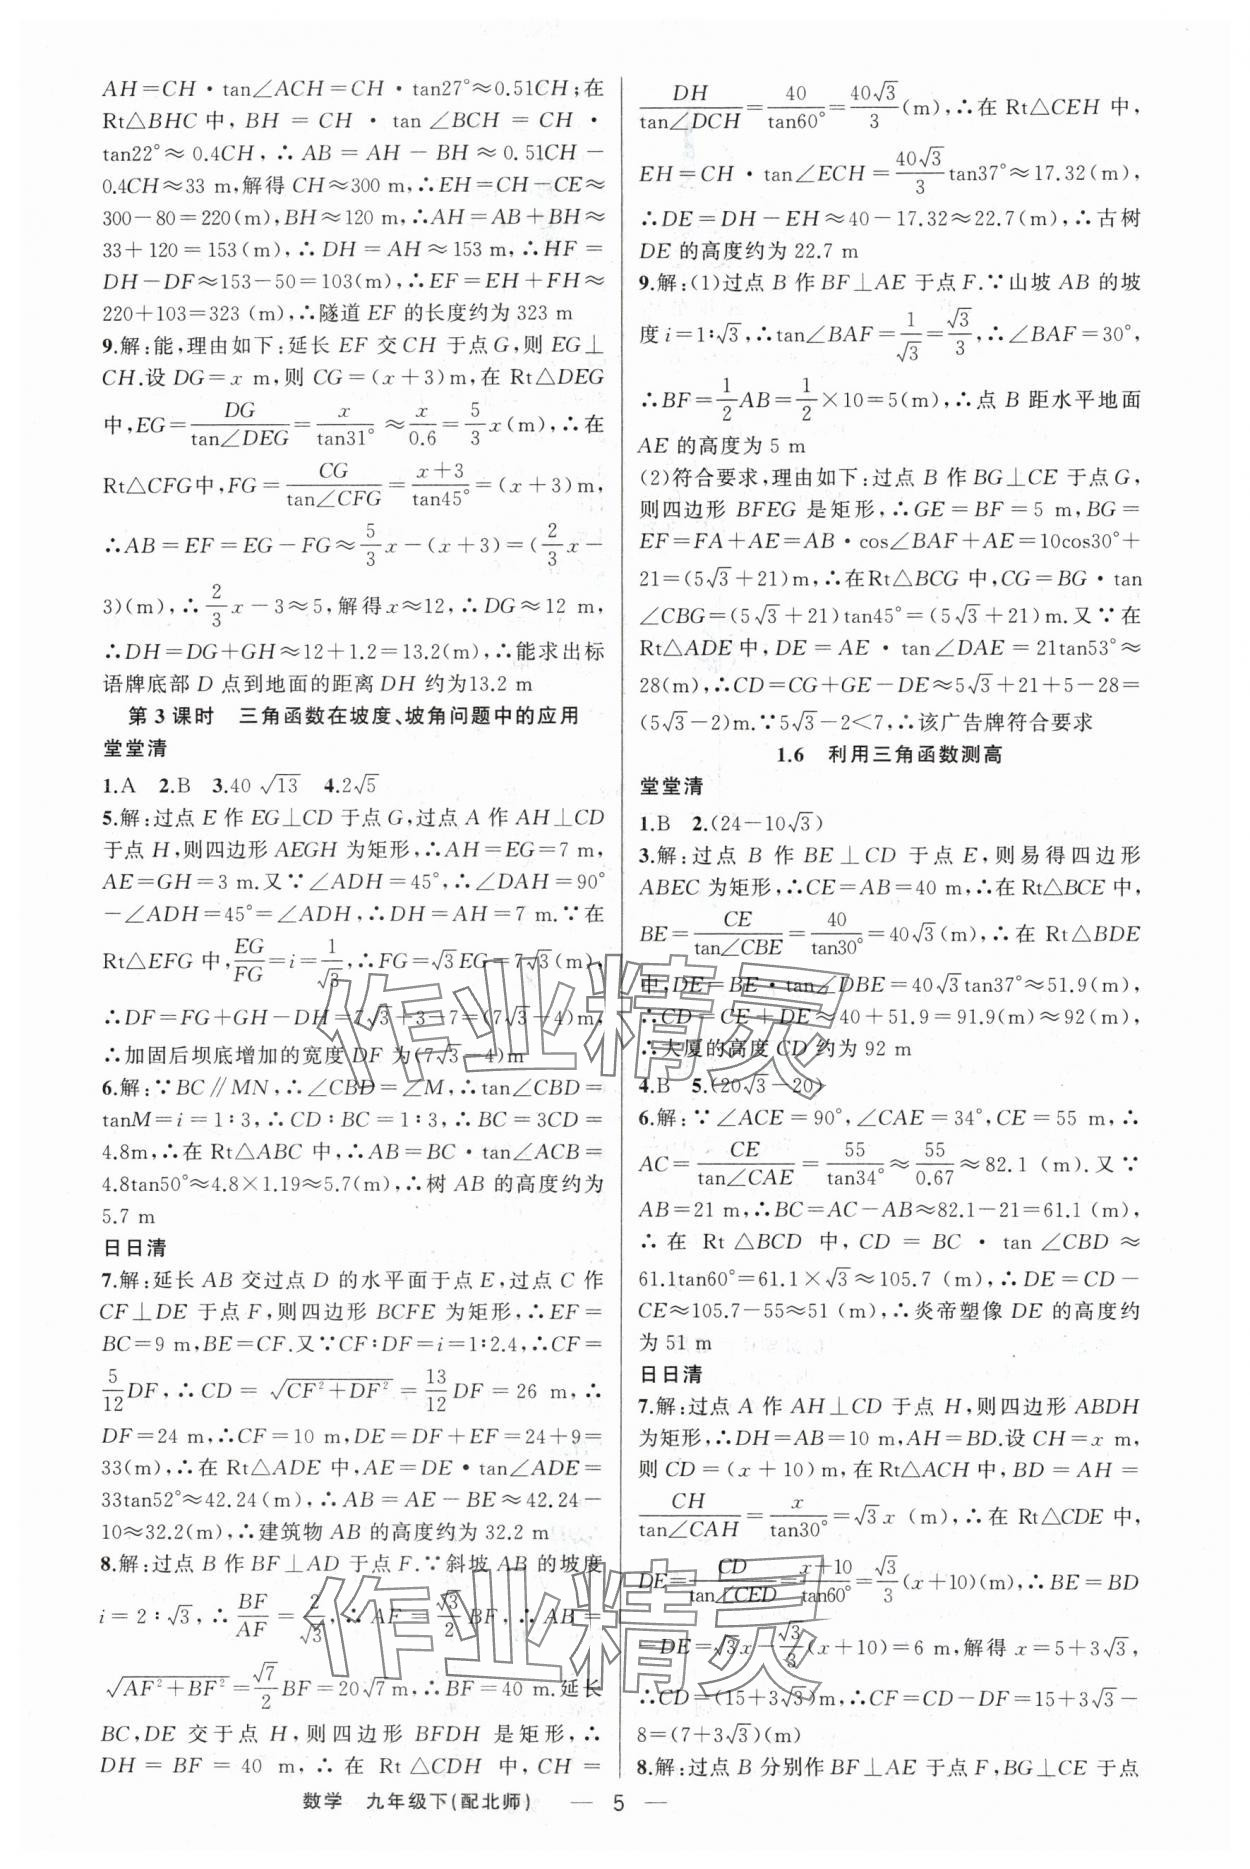 AH=CH·tan∠ACH=CH·tan27°≈0.51CH;在
Rt△BHC中,BH=CH·tan∠BCH=CH·
tan22°≈0.4CH,∴AB=AH-BH≈0.51CH-
0.4CH≈33 m,解得CH≈300 m,∴EH=CH-CE≈
300-80=220(m),BH≈120 m,∴AH=AB+BH≈
33+120=153(m),∴DH=AH≈153 m,∴HF=
DH-DF≈153-50=103(m),∴EF=EH+FH≈
220+103=323 (m),∴隧道EF的长度约为323 m
9.解:能,理由如下:延长EF交CH于点G,则EG⊥
CH.设DG=x m,则CG=(x+3)m,在Rt△DEG
中,EG=DG/tan∠DEG=x/tan31°≈x/0.6=5/3x(m),∴在
Rt△CFG中,FG=CG/tan∠CFG=x+3/tan45°=(x+3)m,
∴AB=EF=EG-FG≈5/3x-(x+3)=(2/3x-
3)(m),∴2/3x-3≈5,解得x≈12,∴DG≈12 m,
∴DH=DG+GH≈12+1.2=13.2(m),∴能求出标
语牌底部D点到地面的距离DH约为13.2 m
第3课时 三角函数在坡度、坡角问题中的应用
堂堂清
1.A 2.B 3.40 √13 4.2√5
5.解:过点E作EG⊥CD于点G,过点A作AH⊥CD
于点H,则四边形AEGH为矩形,∴AH=EG=7 m,
AE=GH=3 m.又∵∠ADH=45°,∴∠DAH=90°
-∠ADH=45°=∠ADH,∴DH=AH=7 m.∵在
Rt△EFG中,EG/FG=i=1/√3,∴FG=√3EG=7√3(m),
∴DF=FG+GH-DH=7√3+3-7=(7√3-4)m,
∴加固后坝底增加的宽度DF为(7√3-4)m
6.解:∵BC∥MN,∴∠CBD=∠M,∴tan∠CBD=
tanM=i=1∶3,∴CD∶BC=1∶3,∴BC=3CD=
4.8m,∴在Rt△ABC中,∴AB=BC·tan∠ACB=
4.8tan50°≈4.8×1.19≈5.7(m),∴树AB的高度约为
5.7 m
日日清
7.解:延长AB交过点D的水平面于点E,过点C作
CF⊥DE于点F,则四边形BCFE为矩形,∴EF=
BC=9 m,BE=CF.又∵CF∶DF=i=1∶2.4,∴CF=
5/12DF,∴CD=√(CF²+DF²)=13/12DF=26 m,∴
DF=24 m,∴CF=10 m,DE=DF+EF=24+9=
33(m),∴在Rt△ADE中,AE=DE·tan∠ADE=
33tan52°≈42.24(m),∴AB=AE-BE≈42.24-
10≈32.2(m),∴建筑物AB的高度约为32.2 m
8.解:过点B作BF⊥AD于点F.∵斜坡AB的坡度
i=2∶√3,∴BF/AF=2/√3,∴AF=√3/2BF,∴AB=
√(AF²+BF²)=√7/2BF=20√7m,∴BF=40 m.延长
BC,DE交于点H,则四边形BFDH是矩形,∴
DH=BF=40 m,∴在Rt△CDH中,CH=
DH/tan∠DCH=40/tan60°=40√3/3(m),∴在Rt△CEH中,
EH=CH·tan∠ECH=40√3/3tan37°≈17.32(m),
∴DE=DH-EH≈40-17.32≈22.7(m),∴古树
DE的高度约为22.7 m
9.解:(1)过点B作BF⊥AE于点F.∵山坡AB的坡
度i=1∶√3,∴tan∠BAF=1/√3=√3/3,∴∠BAF=30°,
∴BF=1/2AB=1/2×10=5(m),∴点B距水平地面
AE的高度为5 m
(2)符合要求,理由如下:过点B作BG⊥CE于点G,
则四边形BFEG是矩形,∴GE=BF=5 m,BG=
EF=FA+AE=AB·cos∠BAF+AE=10cos30°+
21=(5√3+21)m,∴在Rt△BCG中,CG=BG·tan
∠CBG=(5√3+21)tan45°=(5√3+21)m.又∵在
Rt△ADE中,DE=AE·tan∠DAE=21tan53°≈
28(m),∴CD=CG+GE-DE≈5√3+21+5-28=
(5√3-2)m.∵5√3-2<7,∴该广告牌符合要求
1.6 利用三角函数测高
堂堂清
1.B 2.(24-10√3)
3.解:过点B作BE⊥CD于点E,则易得四边形
ABEC为矩形,∴CE=AB=40 m,∴在Rt△BCE中,
BE=CE/tan∠CBE=40/tan30°=40√3(m),∴在Rt△BDE
中,DE=BE·tan∠DBE=40√3tan37°≈51.9(m),
∴CD=CE+DE≈40+51.9=91.9(m)≈92(m),
∴大厦的高度CD约为92 m
4.B 5.(20√3-20)
6.解:∵∠ACE=90°,∠CAE=34°,CE=55 m,∴
AC=CE/tan∠CAE=55/tan34°≈55/0.67≈82.1 (m).又∵
AB=21 m,∴BC=AC-AB≈82.1-21=61.1 (m),
∴在Rt△BCD中,CD=BC·tan∠CBD≈
61.1tan60°=61.1×√3≈105.7 (m),∴DE=CD-
CE≈105.7-55≈51 (m),∴炎帝塑像DE的高度约
为51 m
日日清
7.解:过点A作AH⊥CD于点H,则四边形ABDH
为矩形,∴DH=AB=10 m,AH=BD.设CH=x m,
则CD=(x+10)m,在Rt△ACH中,BD=AH=
CH/tan∠CAH=x/tan30°=√3x (m),∴在Rt△CDE中,
DE=CD/tan∠CED=x+10/tan60°=√3/3(x+10)(m),∴BE=BD
-DE=√3x-√3/3(x+10)=6 m,解得x=5+3√3,
∴CD=(15+3√3)m,∴CF=CD-DF=15+3√3-
8=(7+3√3)(m)
8.解:过点B分别作BF⊥AE于点F,BG⊥CE于点
数学 九年级下(配北师) — 5 —
作业精灵
作业精灵